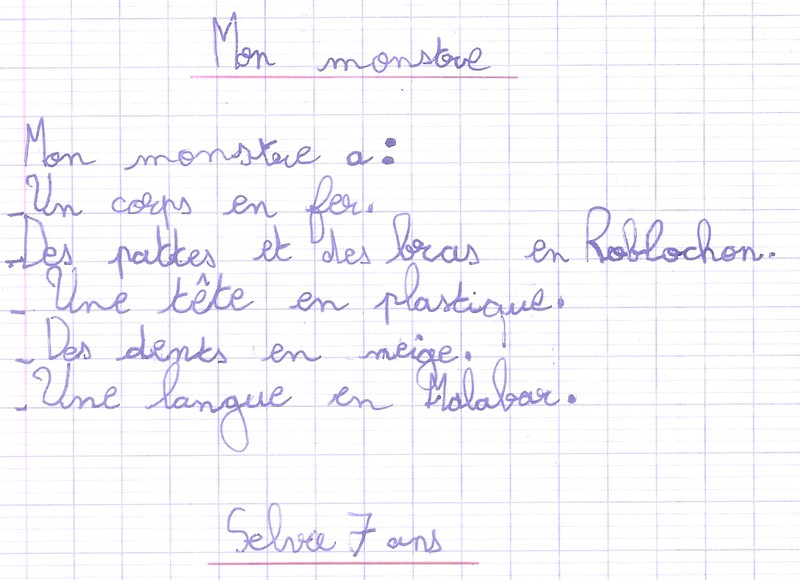 Mon monstre
Mon monstre a :
- Un corps en fer.
- Des pattes et des bras en Roblochon.
- Une tête en plastique.
- Des dents en neige.
- Une langue en Malabar.
7 ans